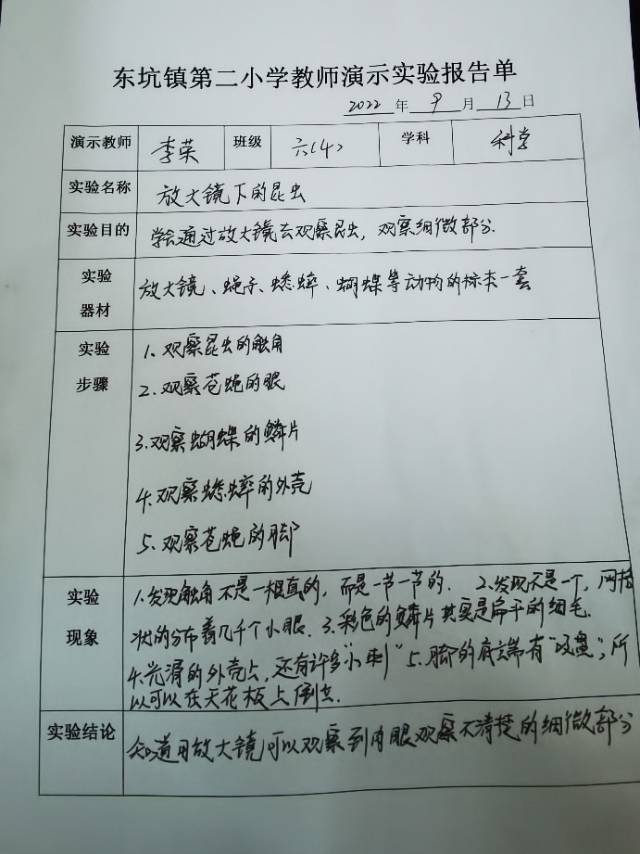 东坑镇第二小学教师演示实验报告单
2022 年 9 月 13 日
演示教师 李荣 班级 六(4) 学科 科学
实验名称 放大镜下的昆虫
实验目的 学会通过放大镜去观察昆虫,观察细微部分.
实验器材 放大镜、蝇子、蟋蟀、蝴蝶等动物的标本一套
实验步骤 1、观察昆虫的触角
2、观察苍蝇的眼
3.观察蝴蝶的鳞片
4.观察蟋蟀的外壳
5.观察苍蝇的脚
实验现象 1.发现触角不是一根直的,而是一节一节的. 2.发现不是一个,网格
状的分布着几千个小眼.3.彩色的鳞片其实是扁平的细毛.
4.光滑的外壳上,还有许多“小刺” 5.脚的底端有“吸盘”;所
以可以在天花板上倒立.
实验结论 知道用放大镜可以观察到肉眼观察不清楚的细微部分